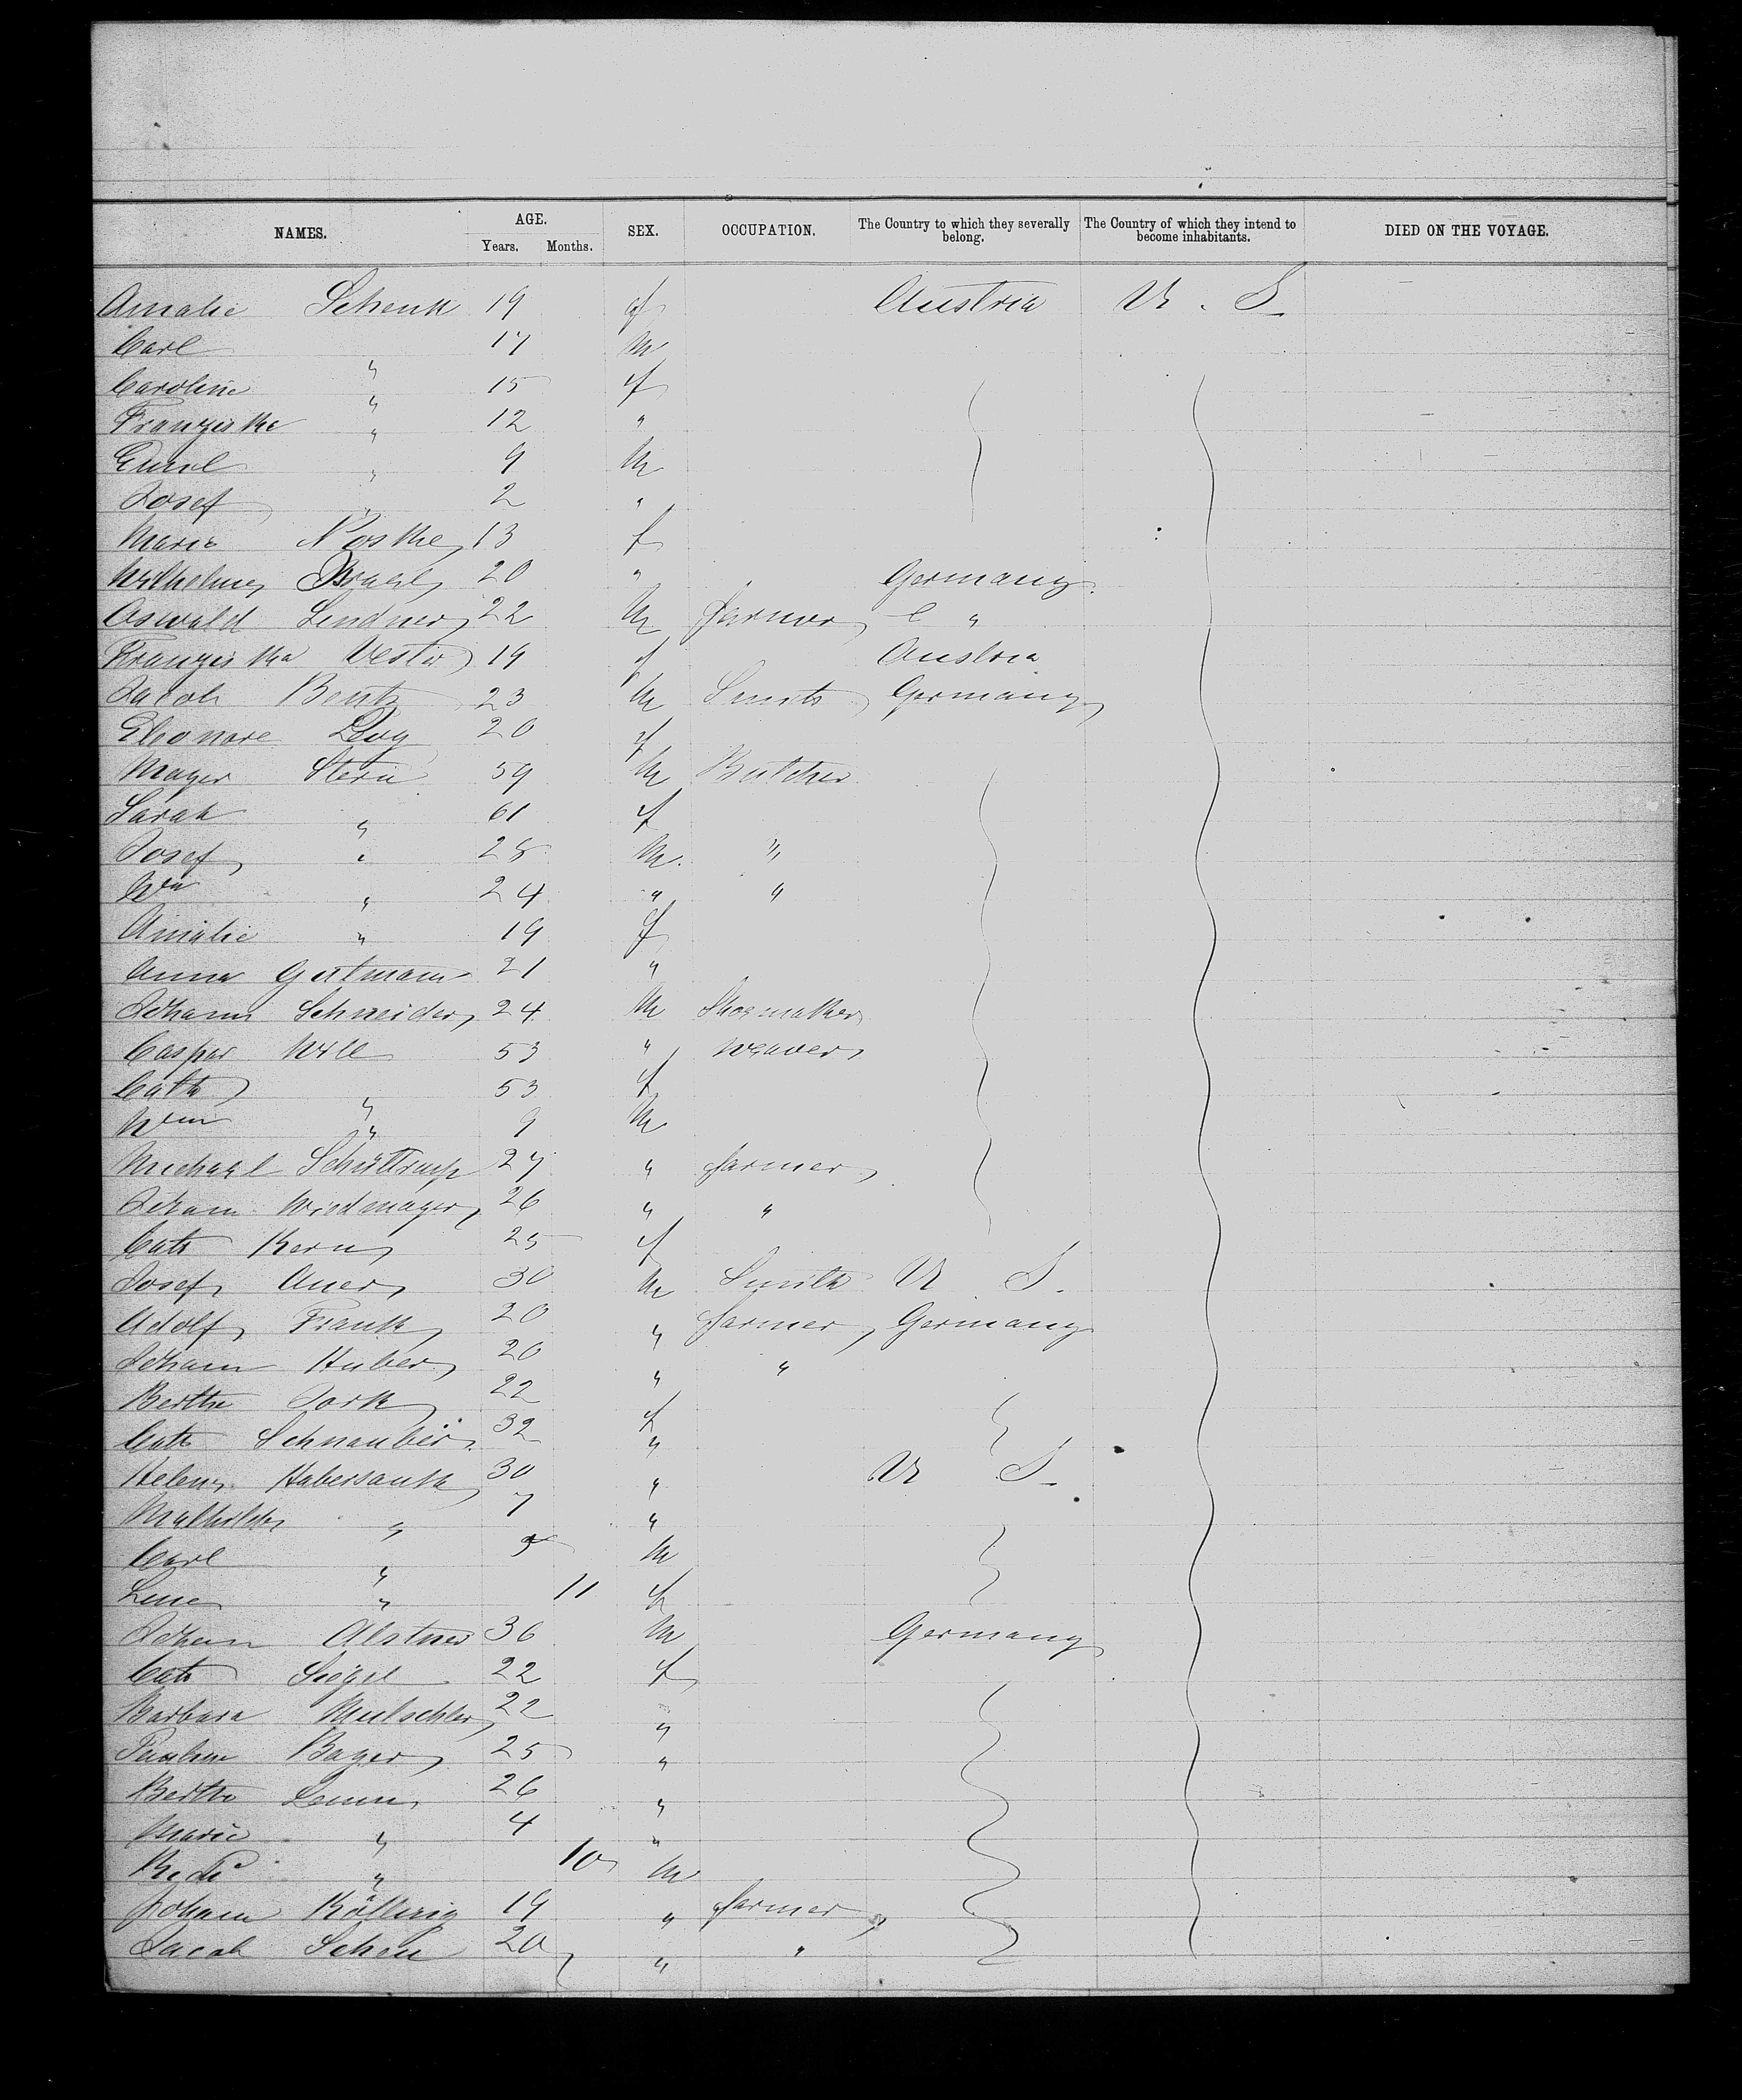 NAMES. AGE. SEX. OCCUPATION. The Country to which they severally belong. The Country of which they intend to become inhabitants. DIED ON THE VOYAGE.
Years. Months.
Amalie Schenk 19 f Austria U. S.
Carl " 17 M
Caroline " 15 f
Franziska " 12 "
Emil " 9 M
Josef " 2 "
Marie Noske 13 f
Wilhelmy 20 " Germany
Oswald Lindner 22 M farmer "
Franziska 19 f Austria
Jacob Bentz 23 M Smith Germany
Eleonore Levy 20 f
Mayer Stern 59 M Butcher
Sarah " 61 f
Josef " 28 M "
Wm " 24 " "
Amalie " 19 f
Anna Gutmann 21 "
Johann Schneider 24 M Shoemaker
Caspar Will 53 " weaver
Cath " 53 f
Wm " 9 M
Michael 27 " farmer
Johann Widmayer 26 " "
Cath Kern 25 f
Josef Auer 30 M Smith U S.
Adolf Frank 20 " farmer Germany
Johann Huber 20 " "
Bertha 22 f
Cath Schnauber 32 "
Helene Habersank 30 " U S.
Mathilde " 7 "
Carl " M
Lene " 11 f
Johann 36 M Germany
Cath Siegel 22 f
Barbara Mutschler 22 "
Pauline Bayer 25 "
Bertha 26 "
Marie " 4 "
" 10 M
Johann Kölling 19 " farmer
Jacob 20 " "